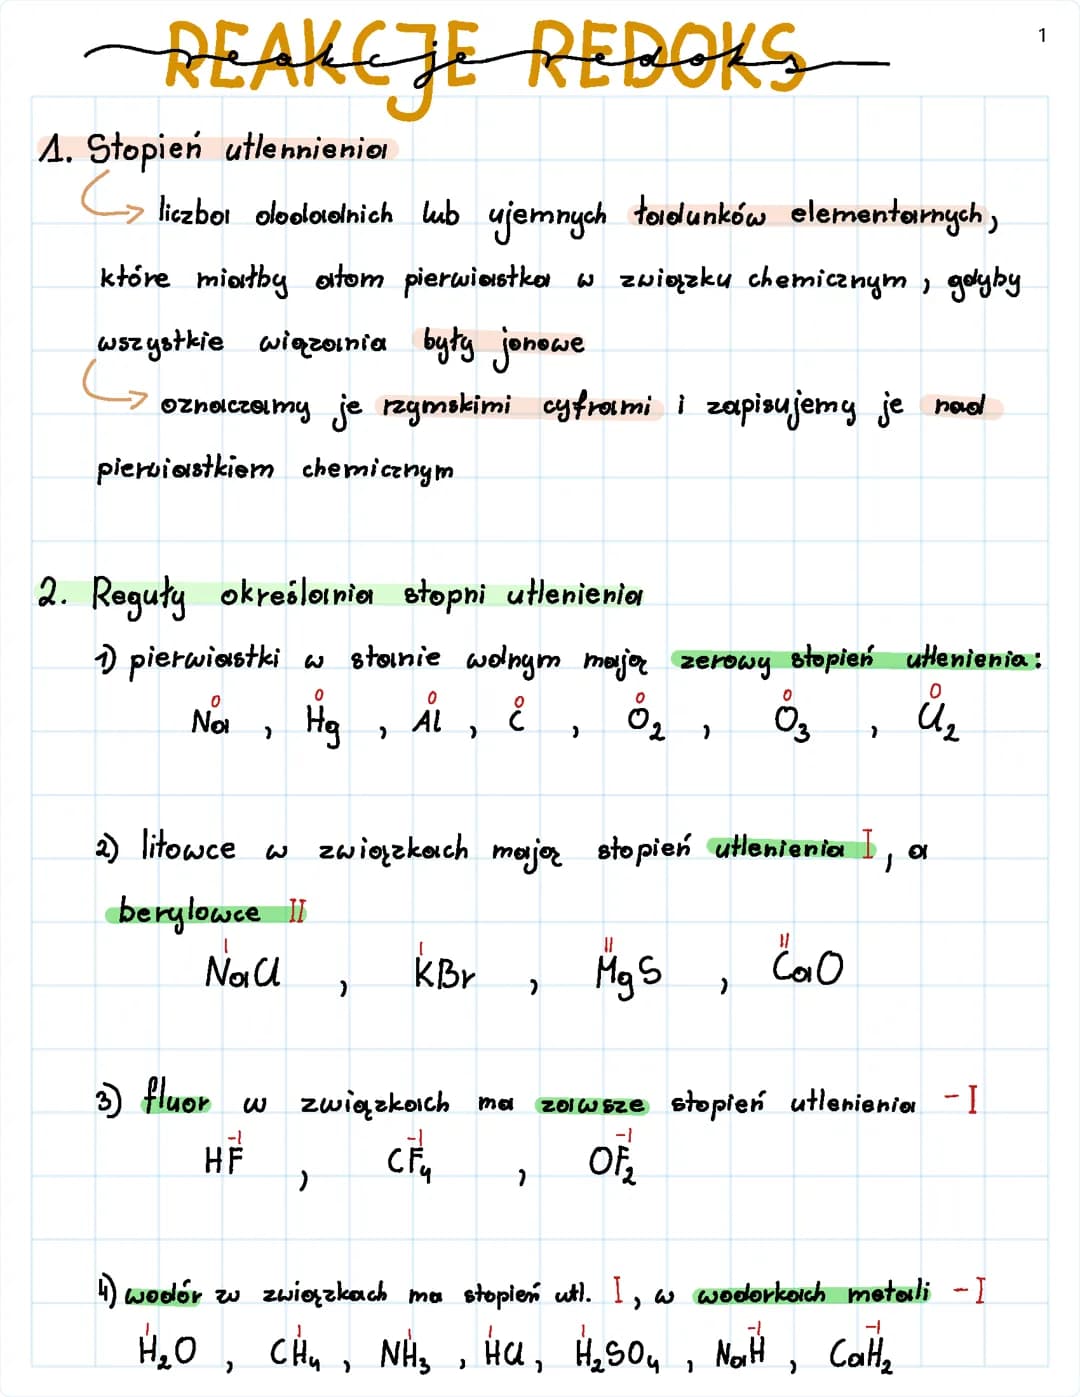 REAKCJE REDOKS
reakcje redoks
1
1. Stopień utlennienia
liczba dodadnich lub ujemnych ładunków elementarnych,
które miałby atom pierwiastka w związku chemicznym, gdyby
wszystkie wiązania były jonowe
oznaczamy je rzymskimi cyframi i zapisujemy je nad
pierwiastkiem chemicznym
2. Reguły określania stopni utlenienia
1) pierwiastki w stanie wolnym mają zerowy stopień utlenienia:
0 0 0 0 0 0 0
Na , Hg , Al , C , O₂ , O₃ , Cl₂
2) litowce w związkach mają stopień utlenienia I, a
berylowce II
I I II II
NaCl , KBr , MgS , CaO
3) fluor w związkach ma zawsze stopień utlenienia -I
-I -I -I
HF , CF₄ , OF₂
4) wodór w związkach ma stopień utl. I, w wodorkach metali -I
I I I I I -I -I
H₂O , CH₄ , NH₃ , HCl , H₂SO₄ , NaH , CaH₂